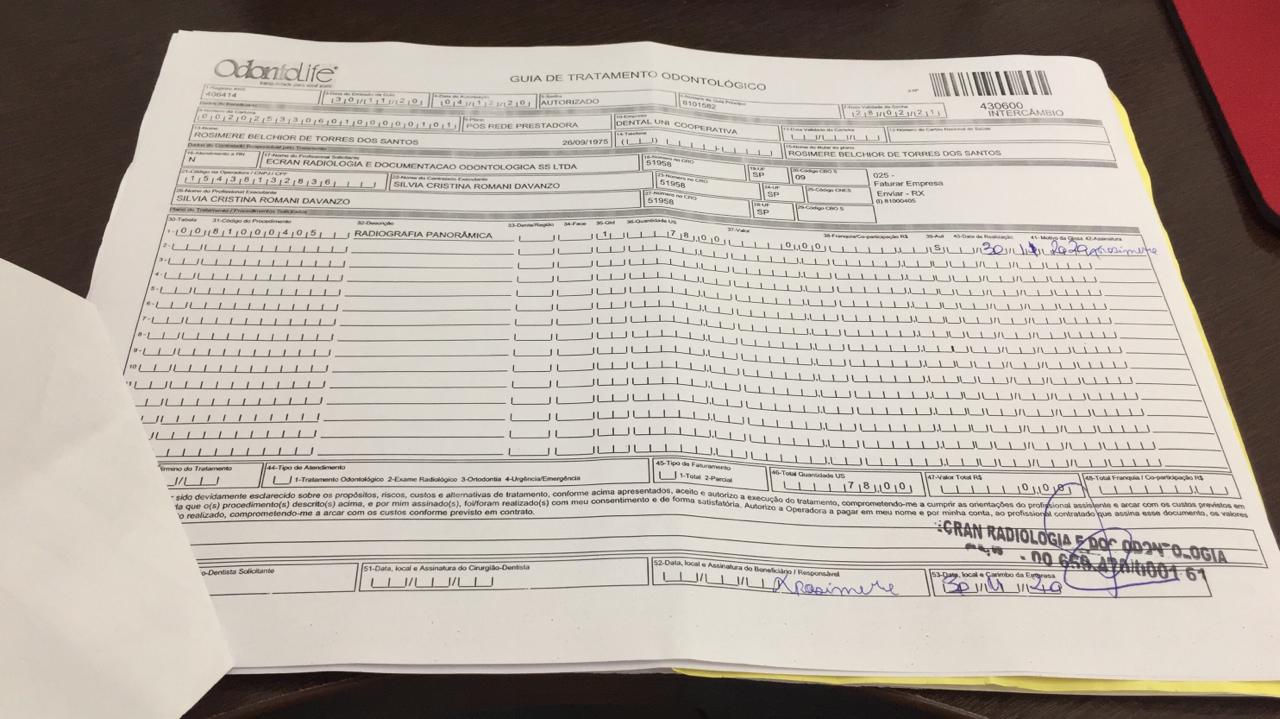 OdontoLife®
GUIA DE TRATAMENTO ODONTOLÓGICO
2-Nº
1-Registro ANS
406414
3-Data de Emissão da Guia
30/11/20
4-Data da Autorização
04/12/20
5-Senha
AUTORIZADO
6-Número da Guia Principal
8101582
7-Data Validade da Senha
28/02/21
430600
INTERCÂMBIO
Dados do Beneficiário
00202533060100000101
9-Plano
POS REDE PRESTADORA
10-Empresa
DENTAL UNI COOPERATIVA
11-Data Validade da Carteira
12-Número do Cartão Nacional de Saúde
13-Nome
ROSIMERE BELCHIOR DE TORRES DOS SANTOS
26/09/1975
14-Telefone
15-Nome do titular do plano
ROSIMERE BELCHIOR DE TORRES DOS SANTOS
16-Atendimento a RN
N
17-Nome do Profissional Solicitante
ECRAN RADIOLOGIA E DOCUMENTACAO ODONTOLOGICA SS LTDA
18-Número no CRO
51958
19-UF
SP
20-Código CBO S
09
025 -
Faturar Empresa
Enviar - RX
(I) 81000405
21-Código na Operadora / CNPJ / CPF
15438132836
22-Nome do Contratado Executante
SILVIA CRISTINA ROMANI DAVANZO
23-Número no CRO
51958
24-UF
SP
25-Código CNES
26-Nome do Profissional Executante
SILVIA CRISTINA ROMANI DAVANZO
27-Número no CRO
51958
28-UF
SP
29-Código CBO S
Plano de Tratamento / Procedimentos Solicitados
30-Tabela 31-Código do Procedimento 32-Descrição 33-Dente/Região 34-Face 35-Qtd 36-Quantidade US 37-Valor 38-Franquia/Co-participação R$ 39-Aut 40-Data de Realização 41- Motivo da Glosa 42-Assinatura
1- 0081000405 RADIOGRAFIA PANORÂMICA 1 78,00 0,00 S 30/11/2020 rosimere
2-
3-
4-
5-
6-
7-
8-
9-
10
Término do Tratamento
44-Tipo de Atendimento
1-Tratamento Odontológico 2-Exame Radiológico 3-Ortodontia 4-Urgência/Emergência
45-Tipo de Faturamento
1-Total 2-Parcial
46-Total Quantidade US
78,00
47-Valor Total R$
0,00
48-Total Franquia / Co-participação R$
sido devidamente esclarecido sobre os propósitos, riscos, custos e alternativas de tratamento, conforme acima apresentados, aceito e autorizo a execução do tratamento, comprometendo-me a cumprir as orientações do profissional assistente e arcar com os custos previstos em
da que o(s) procedimento(s) descrito(s) acima, e por mim assinado(s), foi/foram realizado(s) com meu consentimento e de forma satisfatória. Autorizo a Operadora a pagar em meu nome e por minha conta, ao profissional contratado que assina esse documento, os valores
realizado, comprometendo-me a arcar com os custos conforme previsto em contrato.
CRAN RADIOLOGIA E DOC ODONTOLOGIA
o-Dentista Solicitante
51-Data, local e Assinatura do Cirurgião-Dentista
52-Data, local e Assinatura do Beneficiário / Responsável
X rosimere
53-Data, local e Carimbo da Empresa
30/11/20